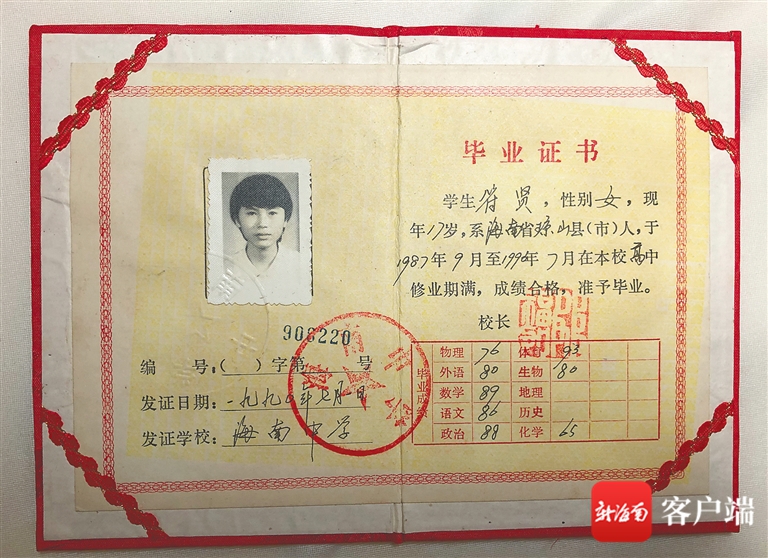 906220
编 号:( )字第 号
发证日期: 一九九〇年七月一日
发证学校: 海南中学
毕业证书
学生符贤,性别女,现
年17岁,系海南省琼山县(市)人,于
1987年9月至1990年7月在本校高中
修业期满,成绩合格,准予毕业。
校长
毕业成绩
物理 76 体育 93
外语 80 生物 80
数学 89 地理
语文 86 历史
政治 88 化学 65
新海南 客户端